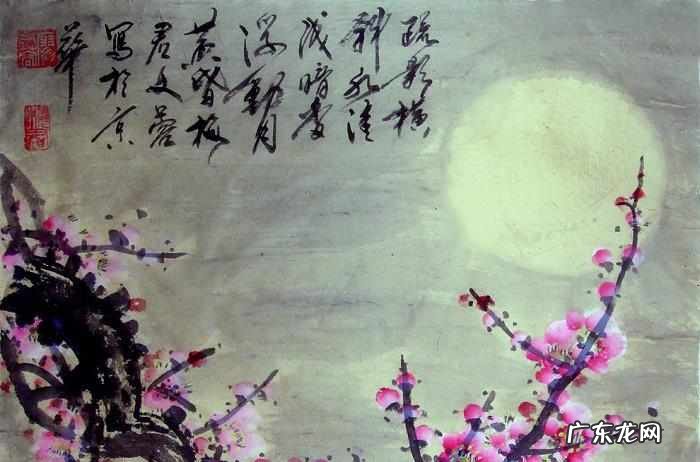 疏影横
斜水清
浅暗香
浮動月
黄昏梅
君文蓉
寫於京
華
广东龙网